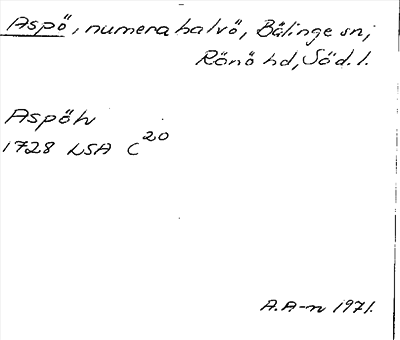 Aspö, numera halvö, Bälinge sn,
Rönö hd, Söd. l.
Aspöh
1728 LSA C20
A.A-n 1971.